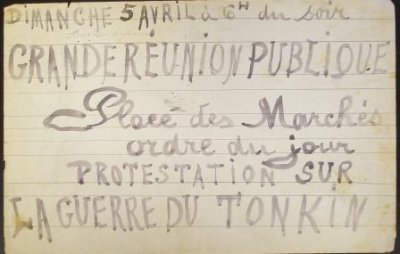 DIMANCHE 5 AVRIL à 6H du soir
GRANDE RÉUNION PUBLIQUE
Place des Marchés
ordre du jour
PROTESTATION SUR
LA GUERRE DU TONKIN